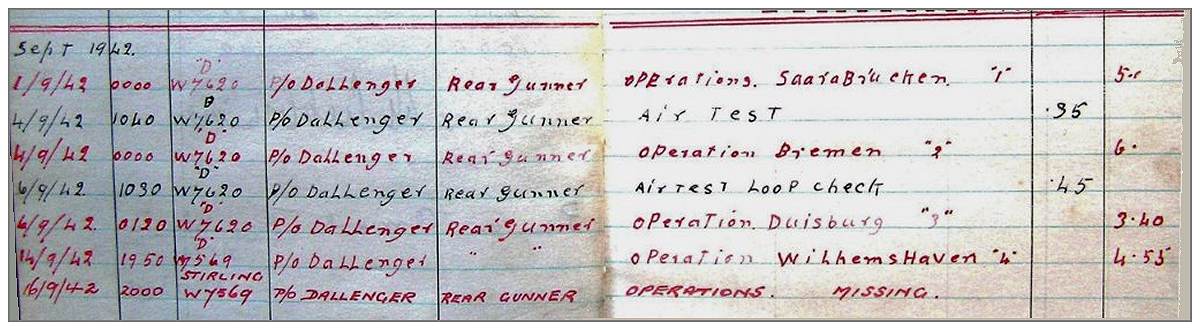 Sept 1942.
1/9/42 0000 "D" W7620 P/o Dallenger Rear Gunner Operations. Saarabruchen. "1" 5.
4/9/42 1040 W7620 P/o Dallenger Rear Gunner Air Test .35
4/9/42 0000 "D" W7620 P/o Dallenger Rear Gunner Operation Bremen "2" 6.
6/9/42 1030 "D" W7620 P/o Dallenger Rear Gunner Air Test Loop check .45
6/9/42 0120 "D" W7620 P/o Dallenger Rear Gunner Operation. Duisburg "3" 3.40
14/9/42 1950 "D" P/o Dallenger " " Operation Wilhemshaven "4" 4.55
16/9/42 2000 STIRLING W7569 P/o DALLENGER REAR GUNNER OPERATIONS. MISSING.